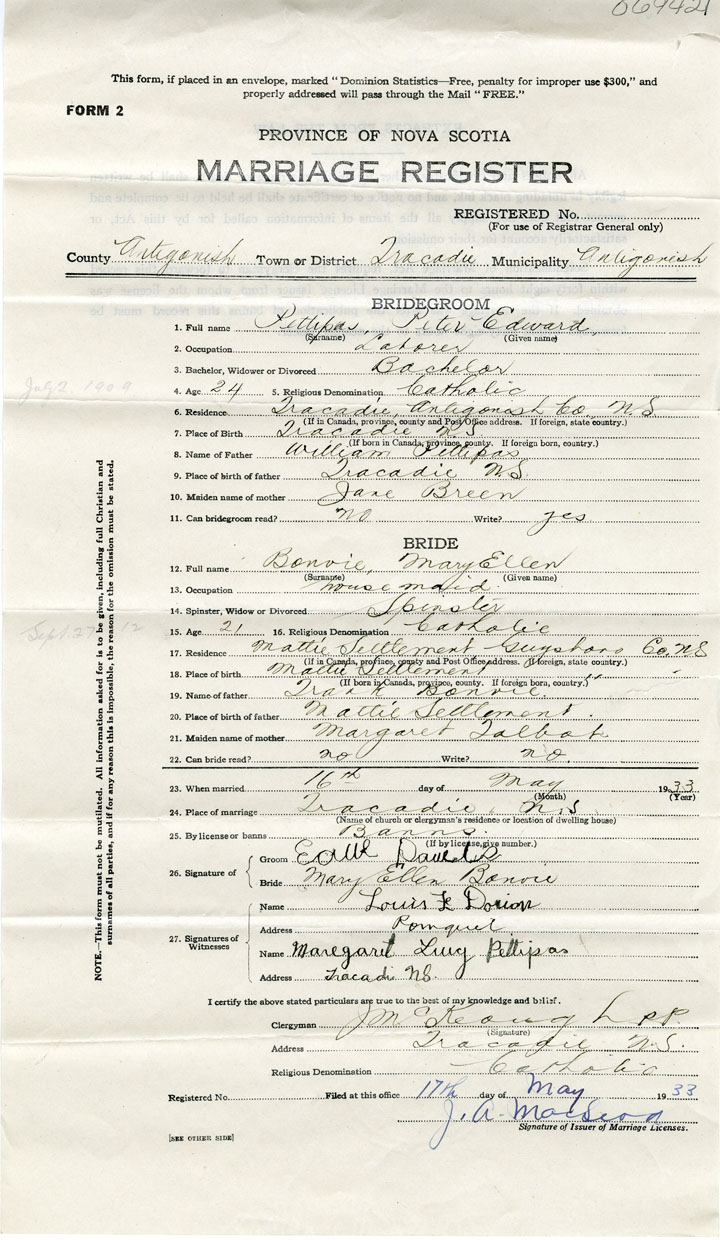 069421
This form, if placed in an envelope, marked "Dominion Statistics—Free, penalty for improper use $300," and
properly addressed will pass through the Mail "FREE."
FORM 2
PROVINCE OF NOVA SCOTIA
MARRIAGE REGISTER
REGISTERED No.
(For use of Registrar General only)
County Antigonish Town or District Tracadie Municipality Antigonish
BRIDEGROOM
1. Full name Pettipas, Peter Edward
(Surname) (Given name)
2. Occupation Laborer
3. Bachelor, Widower or Divorced Bachelor
4. Age 24 5. Religious Denomination Catholic
6. Residence Tracadie, Antigonish Co., N.S
(If in Canada, province, county and Post Office address. If foreign, state country.)
7. Place of Birth Tracadie N.S
(If born in Canada, province, county. If foreign born, country.)
8. Name of Father William Pettipas
9. Place of birth of father Tracadie N.S.
10. Maiden name of mother Jane Breen
11. Can bridegroom read? no Write? yes
BRIDE
12. Full name Bonvie, Mary Ellen
(Surname) (Given name)
13. Occupation housemaid
14. Spinster, Widow or Divorced Spinster
15. Age 21 16. Religious Denomination Catholic
17. Residence Mattie Settlement Guysboro Co. N.S
(If in Canada, province, county and Post Office address. If foreign, state country.)
18. Place of Birth Mattie Settlement " "
(If born in Canada, province, county. If foreign born, country.)
19. Name of father Frank Bonvie
20. Place of birth of father Mattie Settlement.
21. Maiden name of mother Margaret Talbot
22. Can bride read? no Write? no.
23. When married 16th day of May 1933
(Month) (Year)
24. Place of marriage Tracadie, N.S.
(Name of church or clergyman's residence or location of dwelling house)
25. By license or banns Banns.
(If by license, give number.)
26. Signature of
Groom
Bride Mary Ellen Bonvie
27. Signatures of Witnesses
Name Louis F Dorion
Address Pomquet
Name Maregaret Lucy Pettipas
Address Tracadi NS.
I certify the above stated particulars are true to the best of my knowledge and belief.
Clergyman J McKeough P P
(Signature)
Address Tracadie N.S.
Religious Denomination Catholic
Registered No. Filed at this office 17th day of May 1933
J. A. MacLeod
Signature of Issuer of Marriage Licenses.
[SEE OTHER SIDE]
NOTE.—This form must not be mutilated. All information asked for is to be given, including full Christian and
surnames of all parties, and if for any reason this is impossible, the reason for the omission must be stated.
July 2, 1909
Sept 27 12